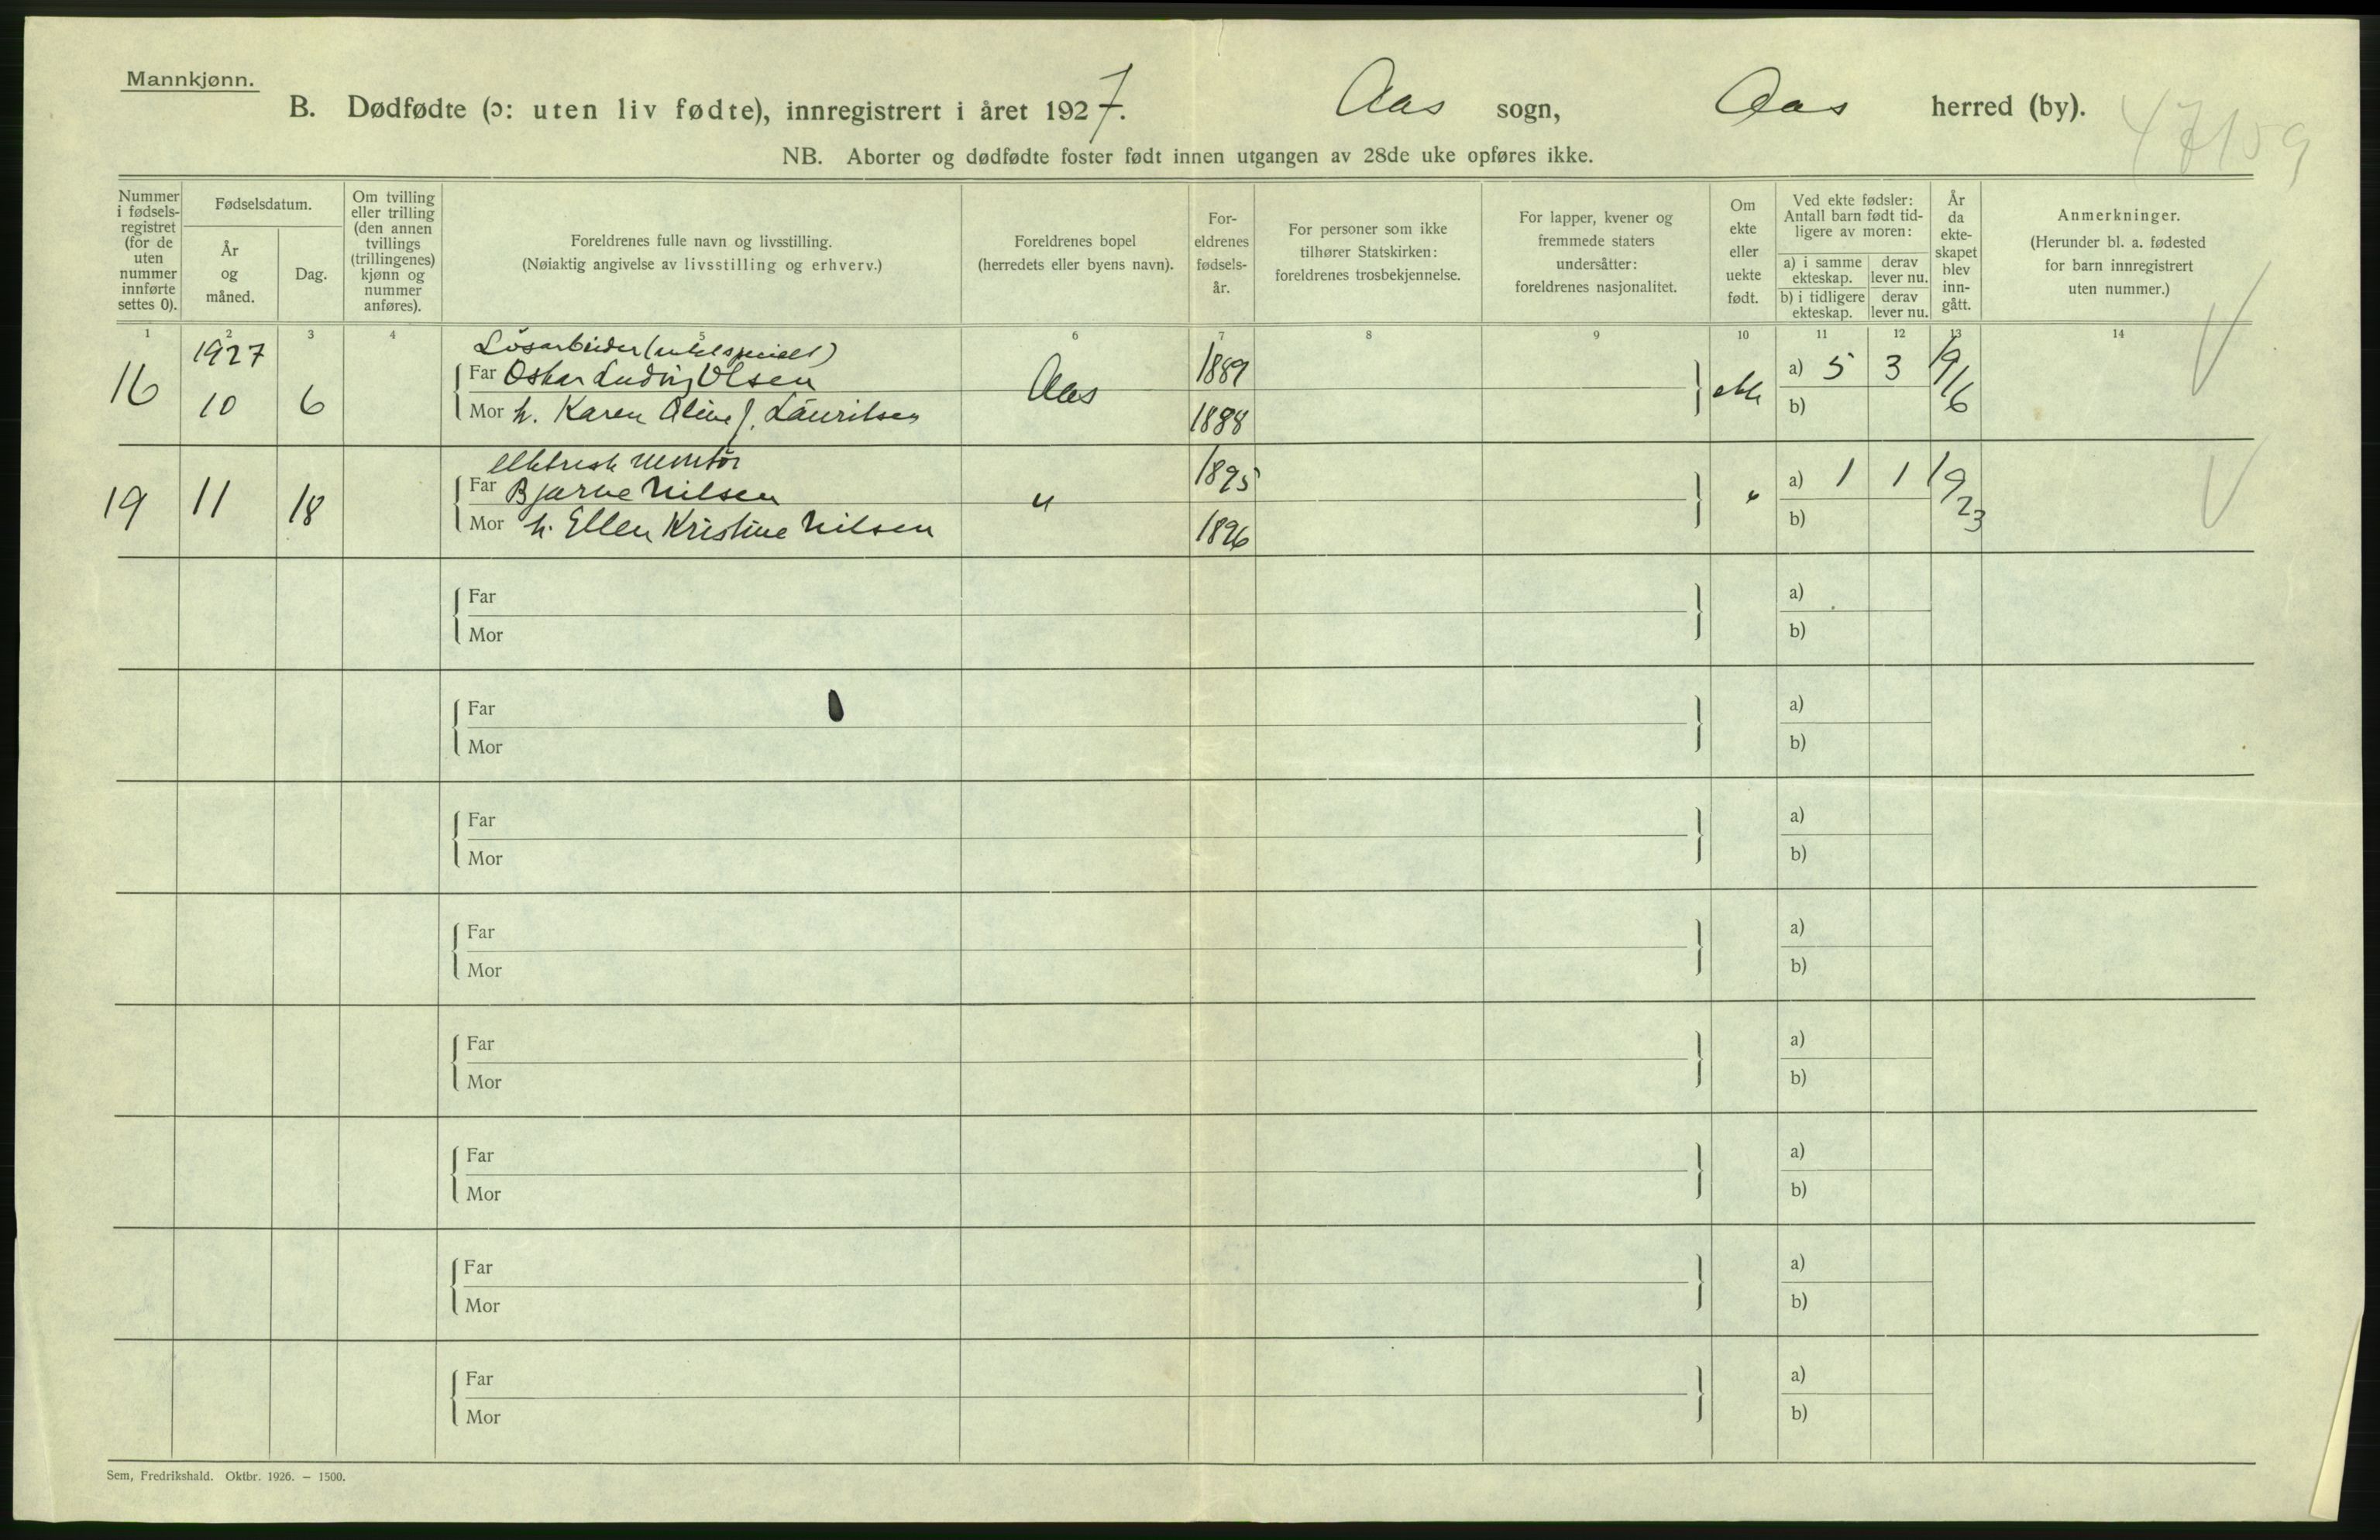 Mannkjønn.
B. Dødfødte (ɔ: uten liv fødte), innregistrert i året 1927. Aas sogn, Aas herred (by).
47159
NB. Aborter og dødfødte foster født innen utgangen av 28de uke opføres ikke.
Nummer i fødsels-registret (for de uten nummer innførte settes 0).
Fødselsdatum.
År og måned.
Dag.
Om tvilling eller trilling (den annen tvillings (trillingenes) kjønn og nummer anføres).
Foreldrenes fulle navn og livsstilling.
(Nøiaktig angivelse av livsstilling og erhverv.)
Foreldrenes bopel
(herredets eller byens navn).
For-eldrenes fødsels-år.
For personer som ikke tilhører Statskirken: foreldrenes trosbekjennelse.
For lapper, kvener og fremmede staters undersåtter: foreldrenes nasjonalitet.
Om ekte eller uekte født.
Ved ekte fødsler: Antall barn født tid-ligere av moren:
a) i samme ekteskap. derav lever nu.
b) i tidligere ekteskap. derav lever nu.
År da ekte-skapet blev inn-gått.
Anmerkninger.
(Herunder bl. a. fødested for barn innregistrert uten nummer.)
1 2 3 4 5 6 7 8 9 10 11 12 13 14
1927 Løsarbeider
16 10 6 Far Oskar Ludvig Olsen Aas 1889 ekte a) 5 3 1916
Mor h. Karen Oline f. Lauritsen 1888 b)
elektrisk montør
19 11 18 Far Bjarne Nilsen " 1895 " a) 1 1 1923
Mor h. Ellen Kristine Nilsen 1896 b)
Far a)
Mor b)
Far a)
Mor b)
Far a)
Mor b)
Far a)
Mor b)
Far a)
Mor b)
Far a)
Mor b)
Far a)
Mor b)
Far a)
Mor b)
Sem, Fredrikshald. Oktbr. 1926. – 1500.